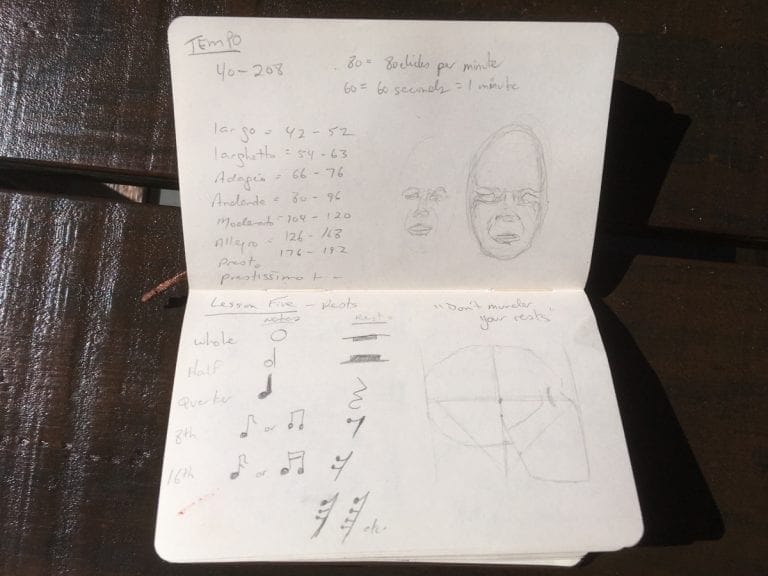 TEMPO
40-208
80 = 80 clicks per minute
60 = 60 seconds = 1 minute
largo = 42 - 52
larghetto = 54 - 63
Adagio = 66 - 76
Andante = 80 - 96
Moderato - 104 - 120
Allegro = 126 - 168
Presto 176 - 192
prestissimo + -
Lesson Five - Rests
Notes Rests
Whole
Half
Quarter
8th or
16th or
etc.
"Don't murder
your rests"